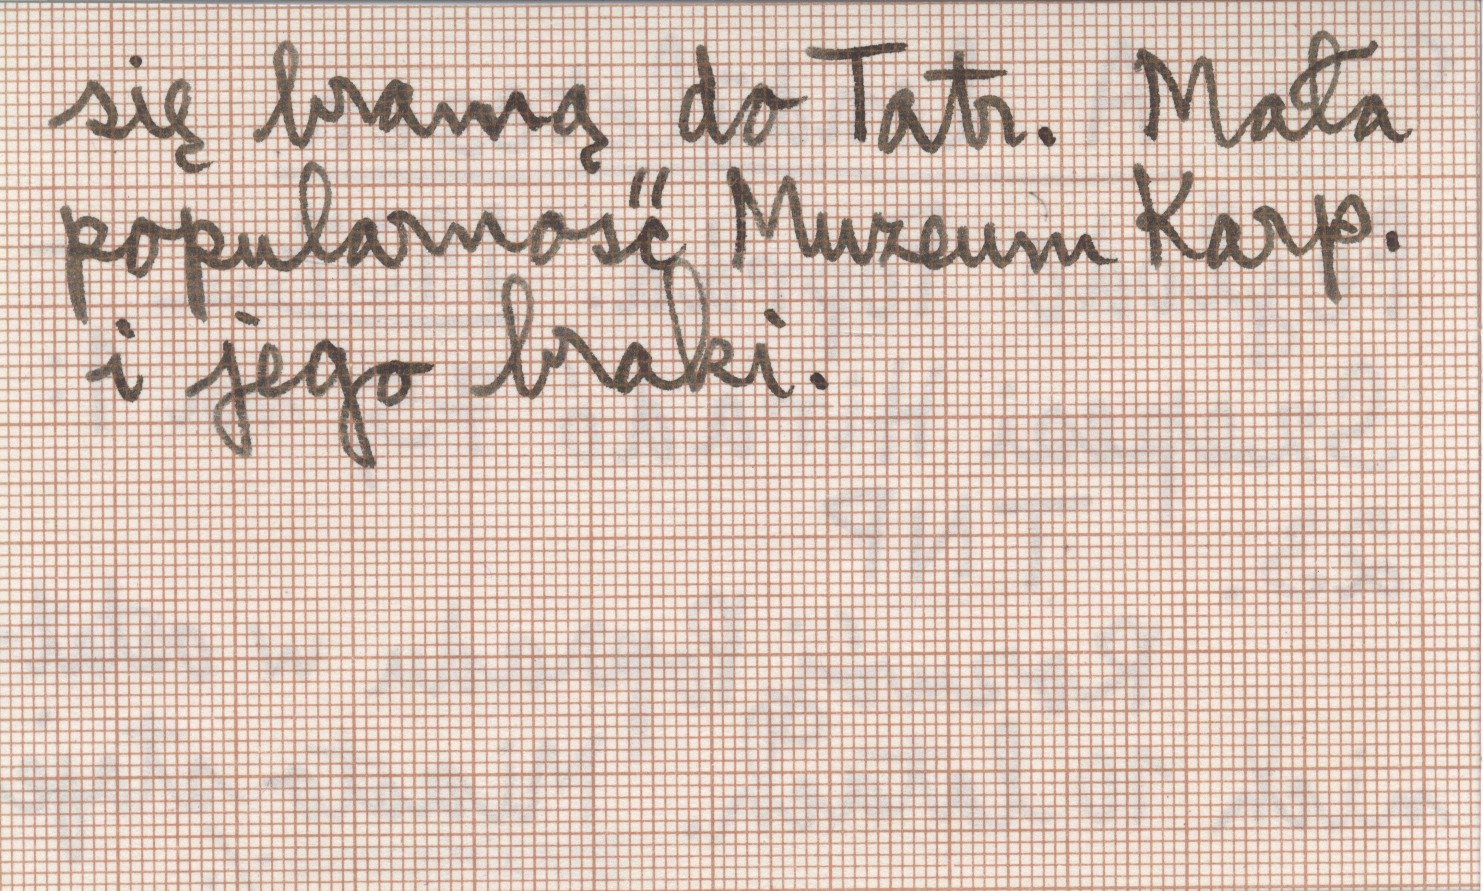 się bramą do Tatr. Mała
popularność Muzeum Karp.
i jego braki.